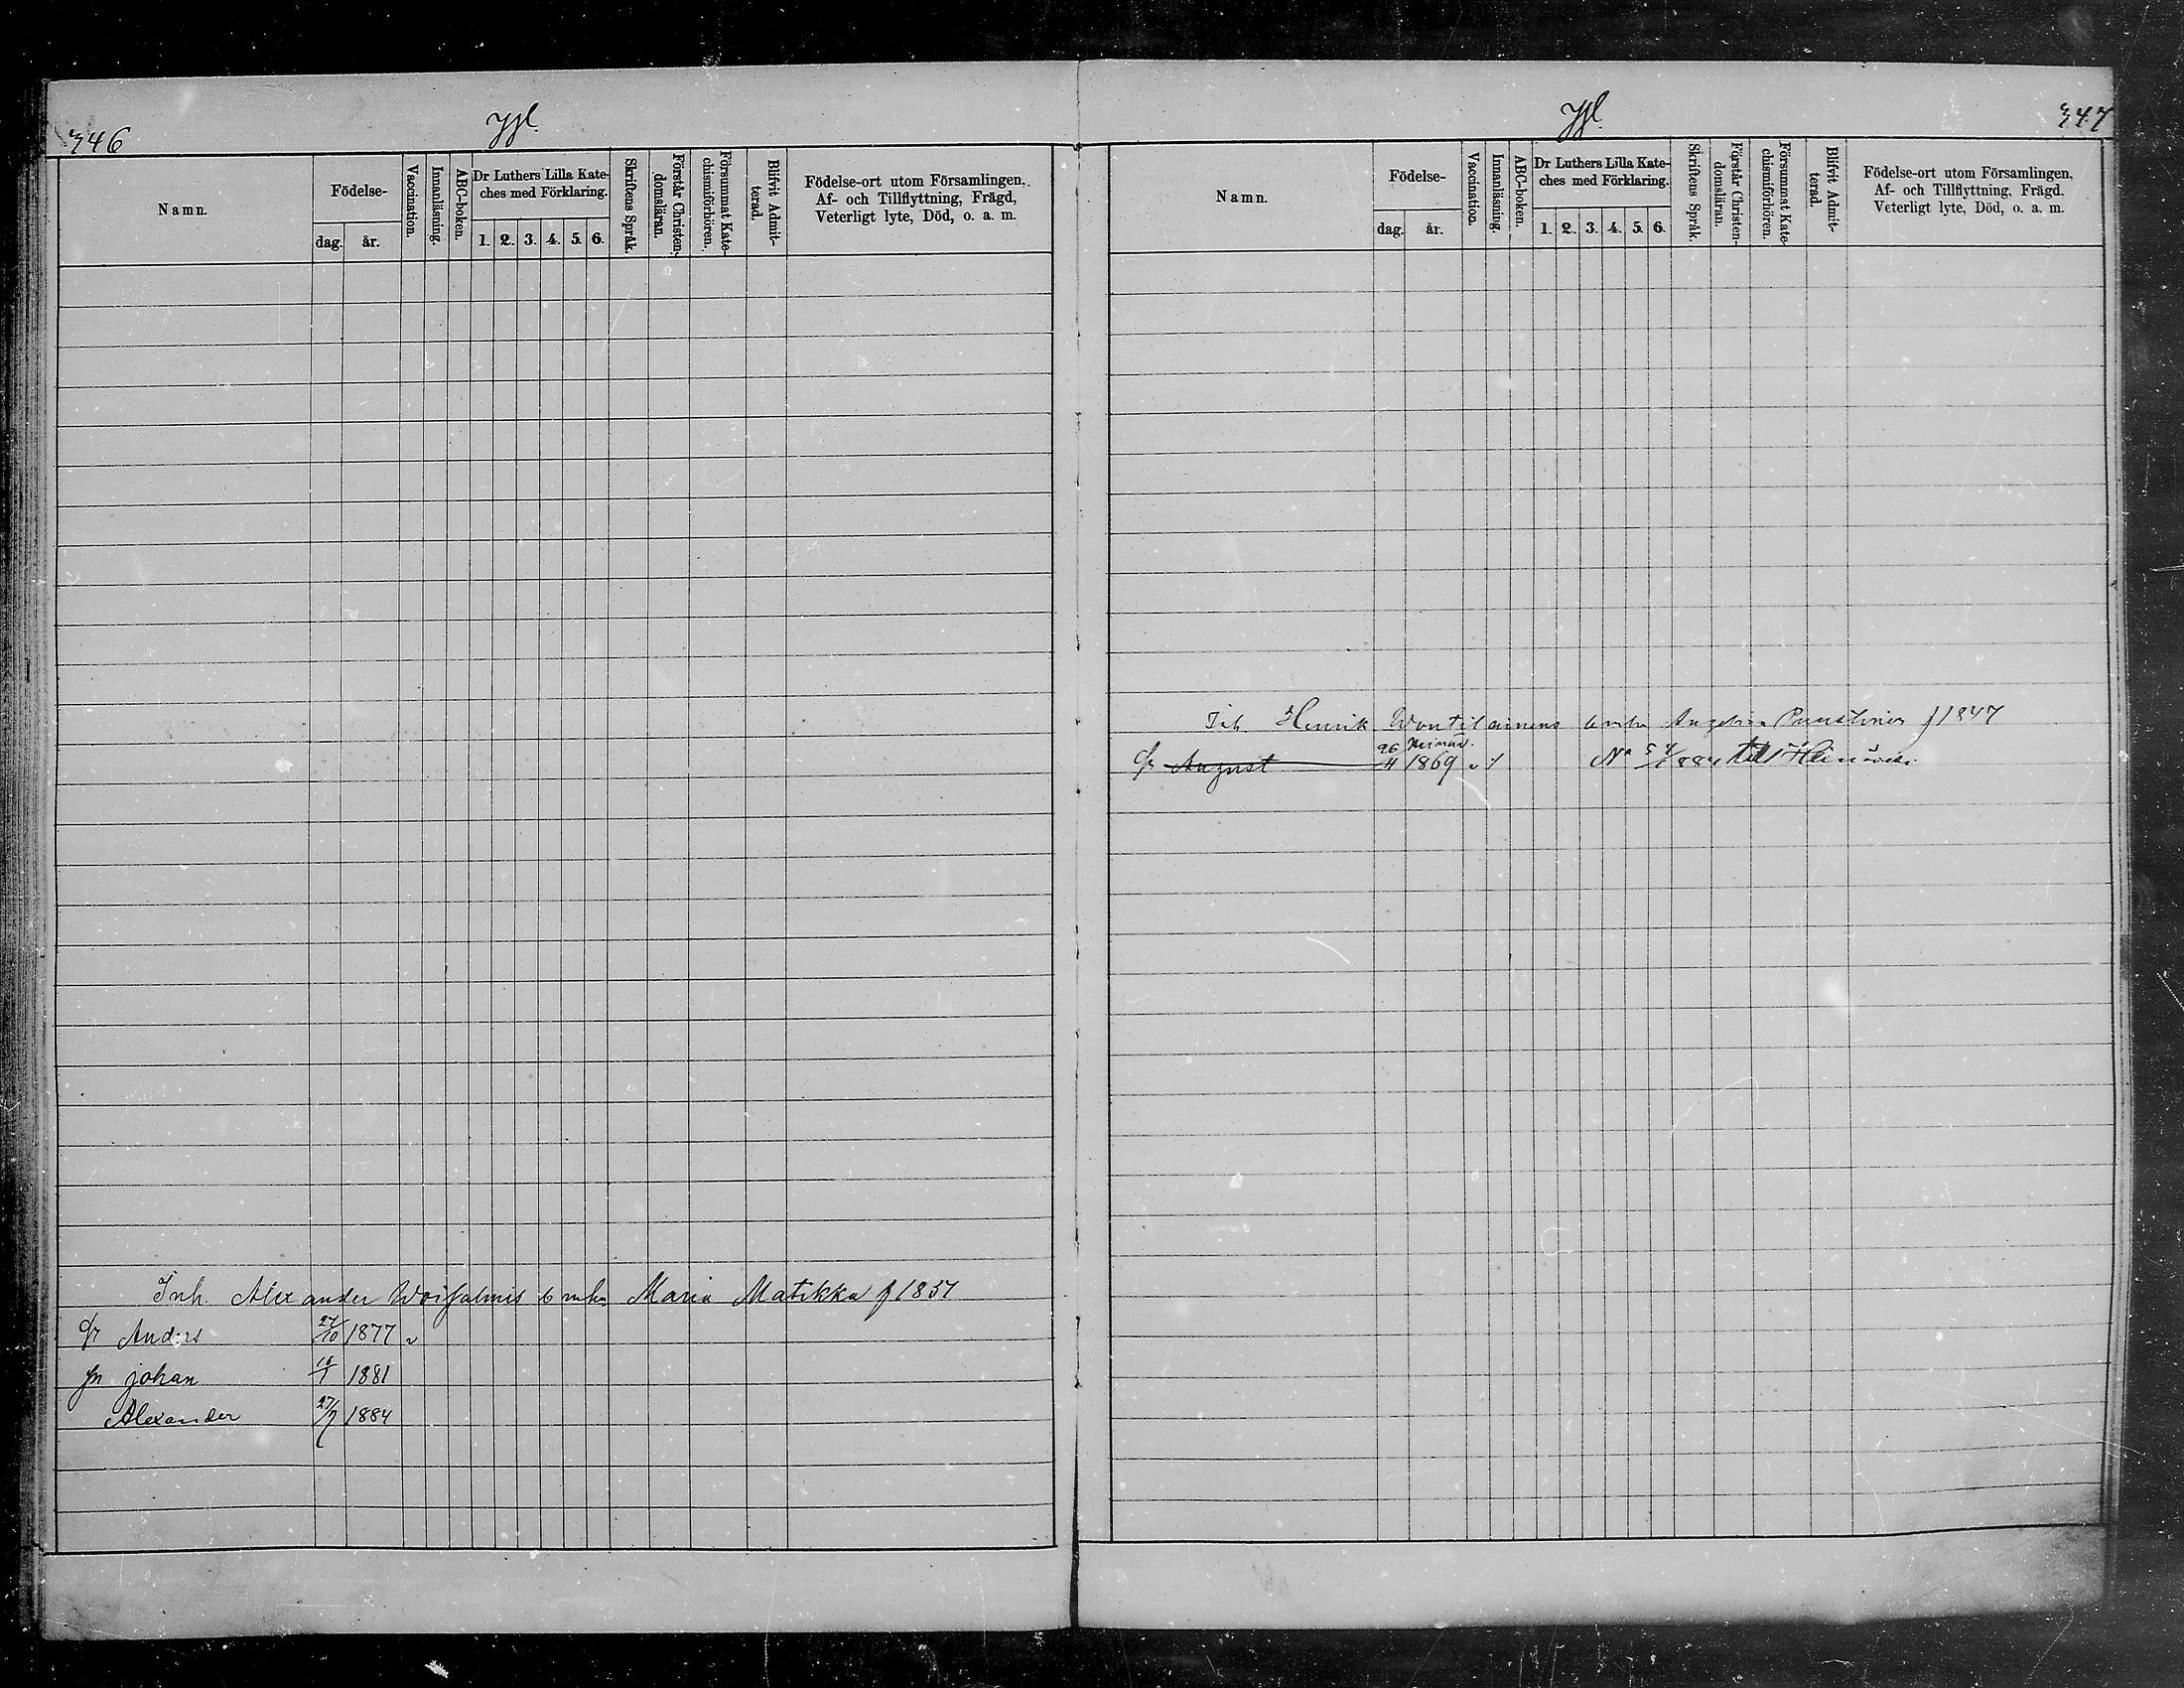 346
Namn.
Födelse-
dag.
år.
Vaccination.
Innanläsning.
ABC-boken.
Dr Luthers Lilla Kate-
ches med Förklaring.
1. 2. 3. 4. 5. 6.
Skriftens Språk.
Förstår Christen-
domsläran.
Försummat Kate-
chismiförhören.
Blifvit Admit-
terad.
Födelse-ort utom Församlingen,
Af- och Tillflyttning, Frägd,
Veterligt lyte, Död, o. a. m.
Inh. Alexander Maria Matikka f 1857
Anders 27/10 1877
johan 1881
Alexander 27/7 1884
347
Namn.
Födelse-
dag.
år.
Vaccination.
Innanläsning.
ABC-boken.
Dr Luthers Lilla Kate-
ches med Förklaring.
1. 2. 3. 4. 5. 6.
Skriftens Språk.
Förstår Christen-
domsläran.
Försummat Kate-
chismiförhören.
Blifvit Admit-
terad.
Födelse-ort utom Församlingen,
Af- och Tillflyttning, Frägd.
Veterligt lyte, Död, o. a. m.
Inh. Henrik f 1847
August 26/11 1869 till